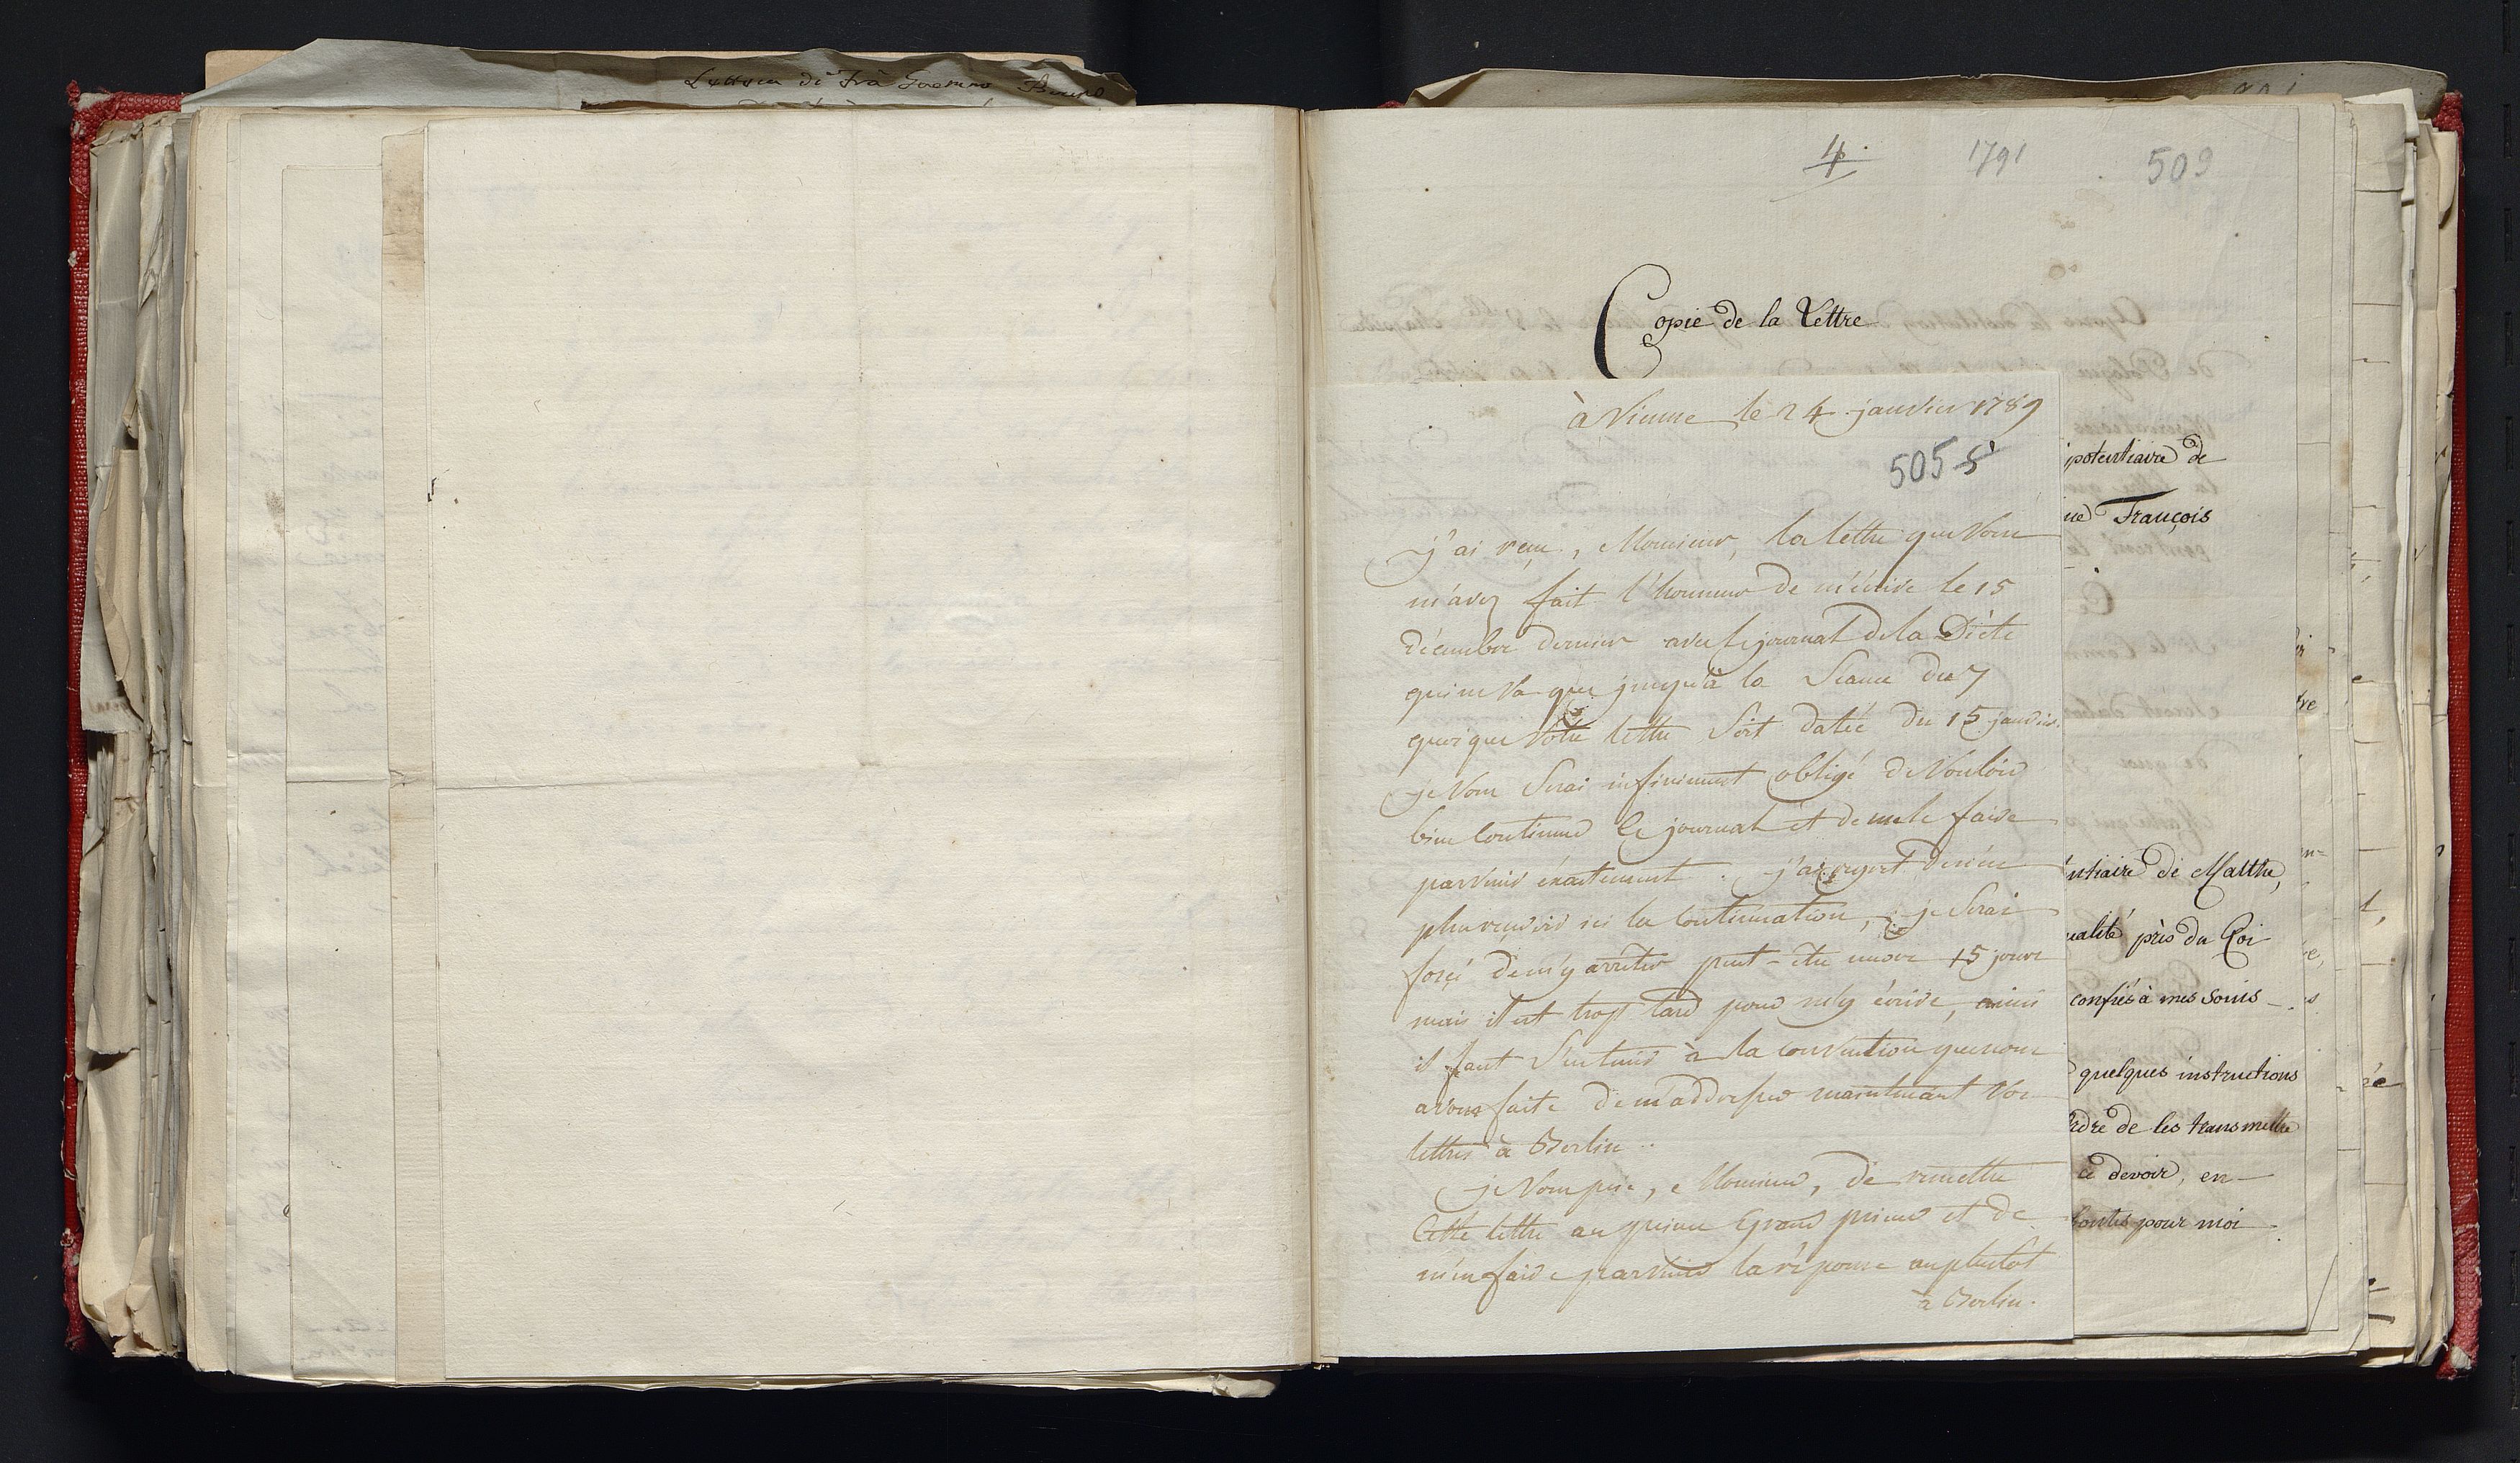 Lettera di Frà
4. 1791 509
Copie de la Lettre
à Vienne le 24 janvier 1789
5055
j'ai reçu, Monsieur, la lettre que Vous
m'avez fait l'honneur de m'écrire le 15
décembre dernier avec le journal de la Diète
qui ne va que jusqu'à la Séance du 7
quoique Votre lettre Soit datée du 15 janvier.
je Vous Serai infiniment obligé de Vouloir
bien Continuer ce journal et de me le faire
parvenir éxactement. j'ai regret de n'en
plus recevoir ici la Continuation, je Serai
forcé de m'y arreter peut-etre encore 15 jours
mais il est trop tard pour m'y écrire, ainsi
il faut S'en tenir à la convention que nous
avons faite de m'addresser maintenant Vos
lettres à Berlin.
je Vous prie, Monsieur, de remettre
Cette lettre au prince Grand prieur et de
m'en faire parvenir la réponse au plustot
à Berlin.
ipotentiaire de
ue François
ntiaire de Malthe,
ualité près du Roi
confiés à mes Soins
quelques instructions
rdre de les transmettre
ce devoir, en-
bontés pour moi